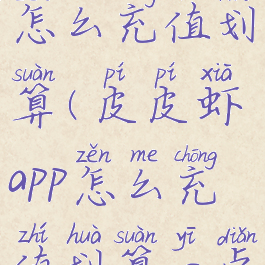 怎么充值划
suàn pí pí xiā
算(皮皮虾
zěn me chōng
app怎么充
zhí huà suàn yī diǎn
值划算一点